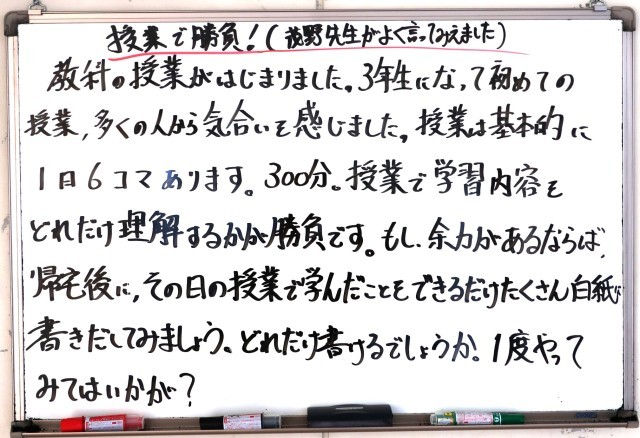 授業で勝負！（茂野先生がよく言ってみえました）
教科の授業がはじまりました。3年生になって初めての
授業，多くの人から気合いを感じました。授業は基本的に
1日6コマあります。300分。授業で学習内容を
どれだけ理解するかが勝負です。もし、余力があるならば，
帰宅後に，その日の授業で学んだことをできるだけたくさん白紙に
書きだしてみましょう。どれだけ書けるでしょうか。1度やって
みてはいかが？